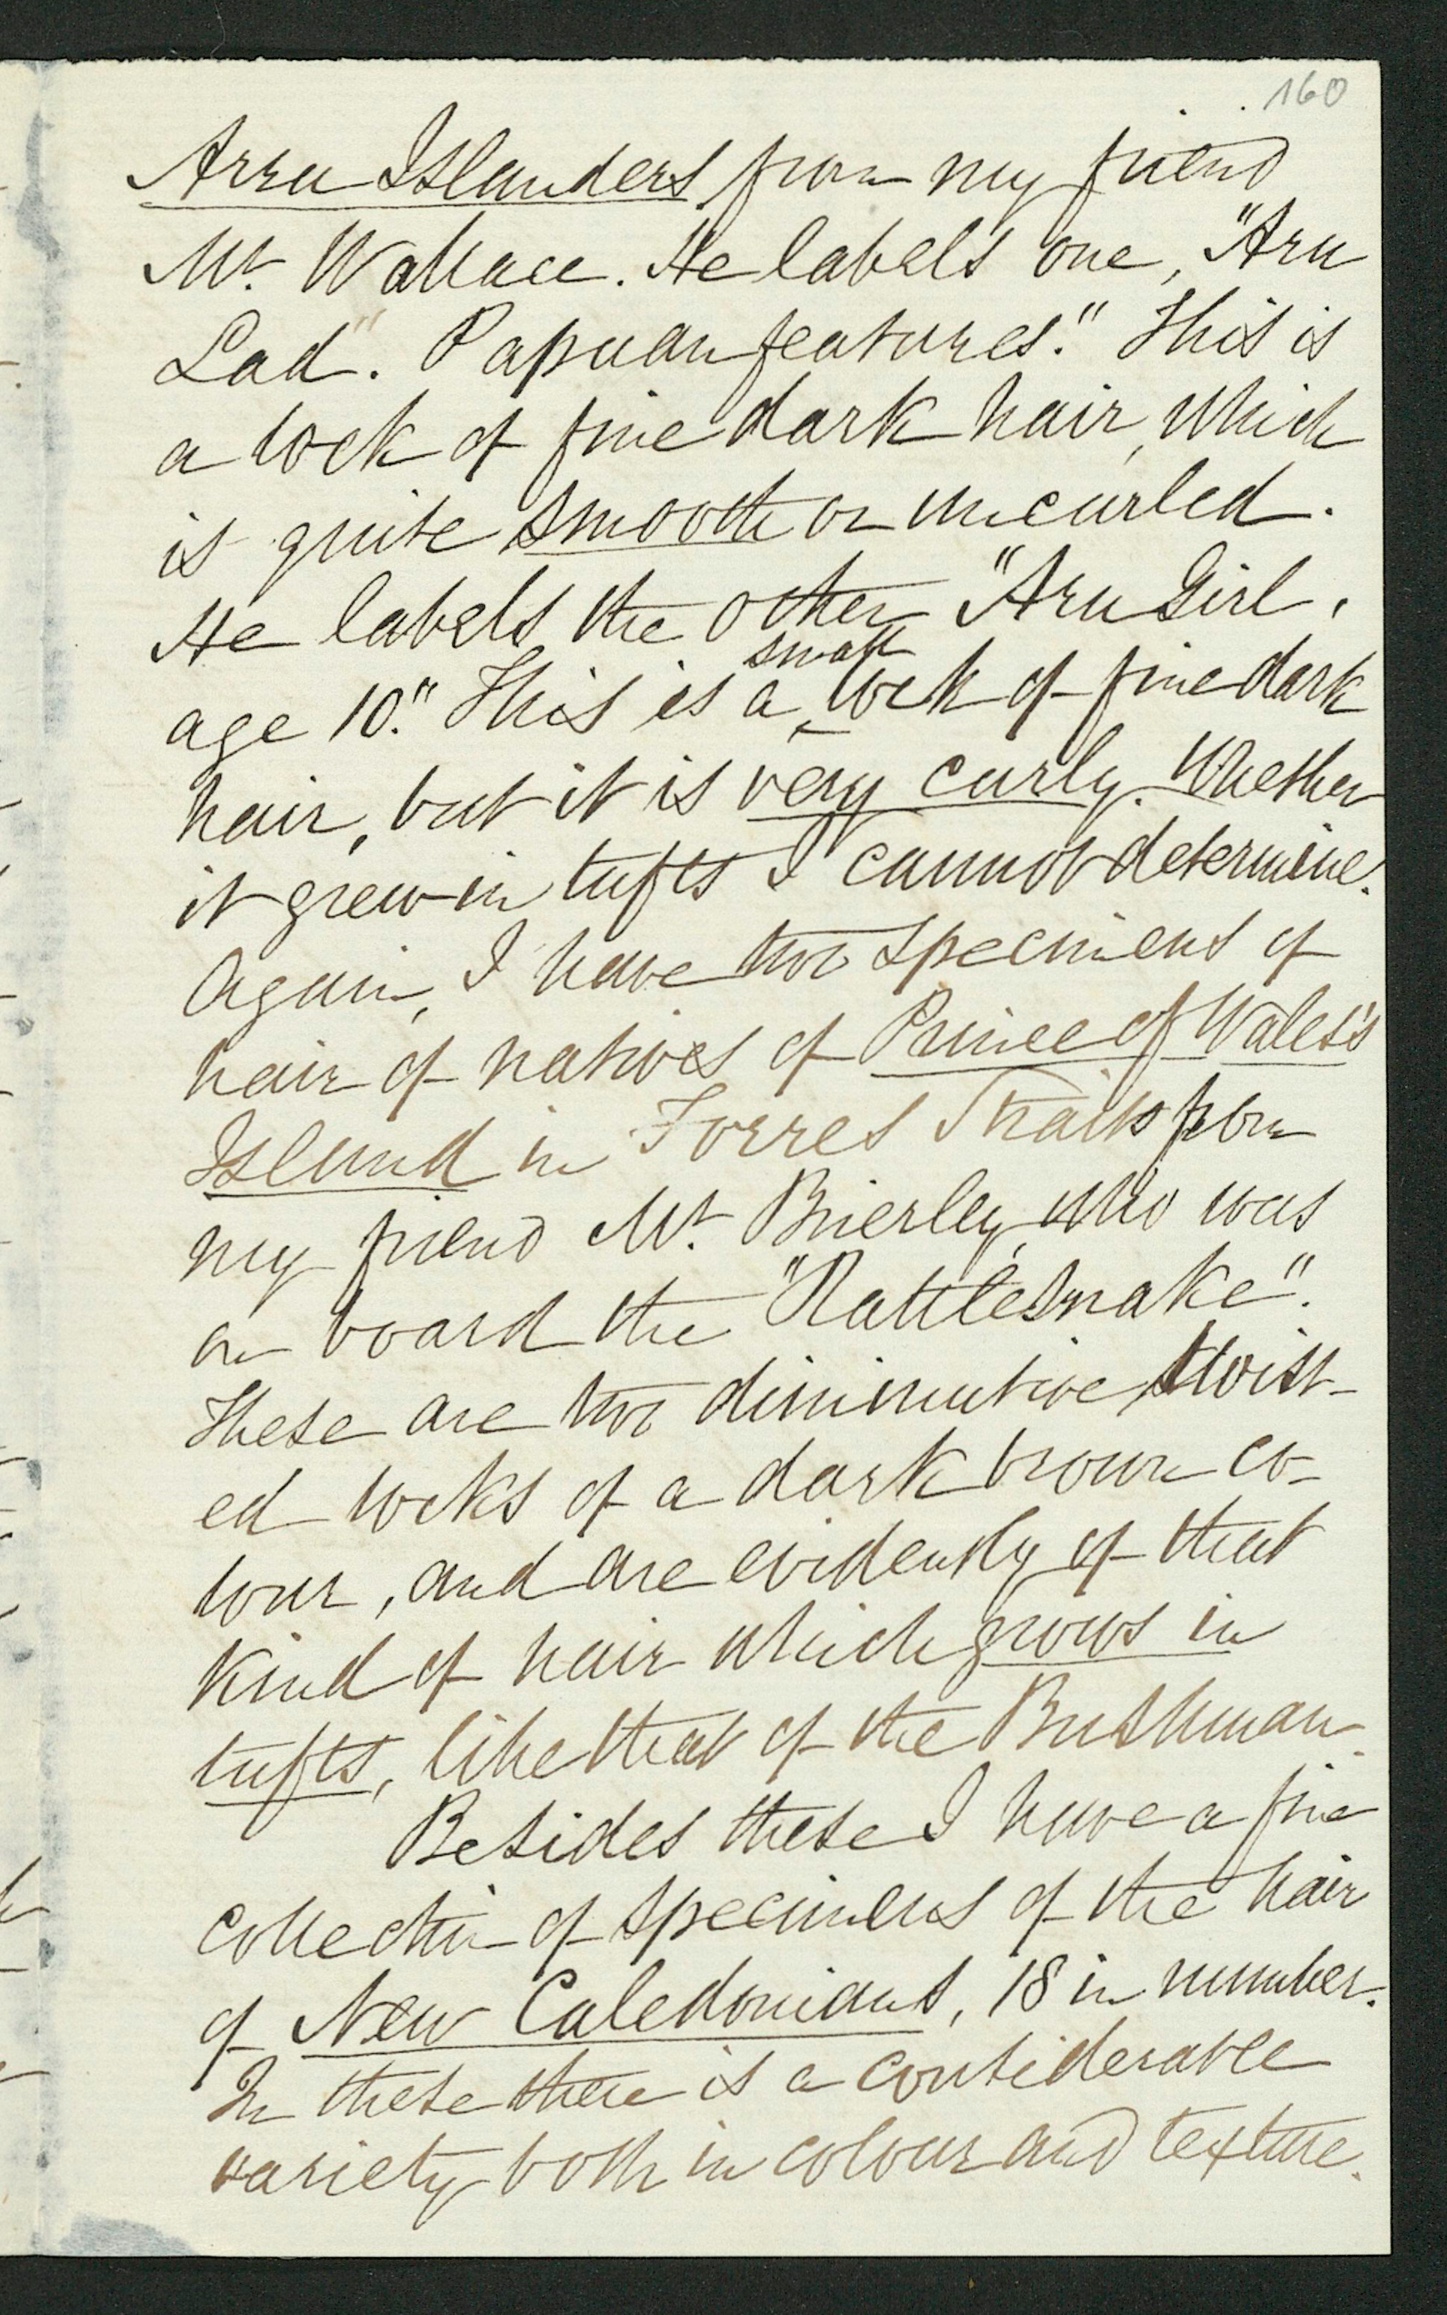 160
Arru Islanders from my friend
Mr. Wallace. He labels one, "Aru
Lad". Papuan features." This is
a lock of fine dark hair, which
is quite smooth or uncurled.
He labels the other "Aru Girl,
small
age 10." This is a lock of fine dark
hair, but it is very curly. Whether
it grew in tufts I cannot determine.
Again, I have two specimens of
hair of natives of Prince of Wales's
Island in Torres Straits from
my friend Mr. Brierley, who was
on board the "Rattlesnake".
These are two diminutive twist-
ed locks of a dark brown co-
lour, and are evidently of that
kind of hair which grows in
tufts, like that of the Bushman.
Besides these I have a fine
collection of specimens of the hair
of New Caledonians, 18 in number.
In these there is a considerable
variety both in colour and texture.